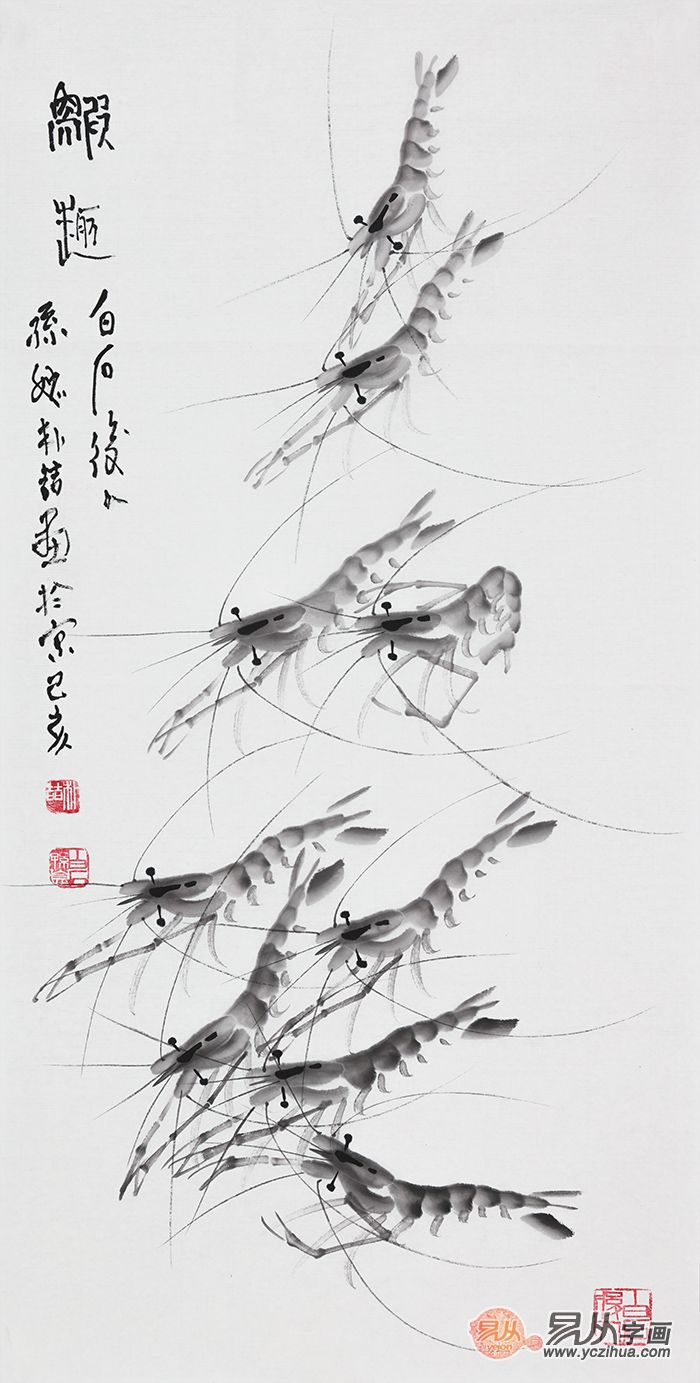 鰕趣
白石後人
孫媳朴喆畫於京己亥
易从
易从字画
www.yczihua.com